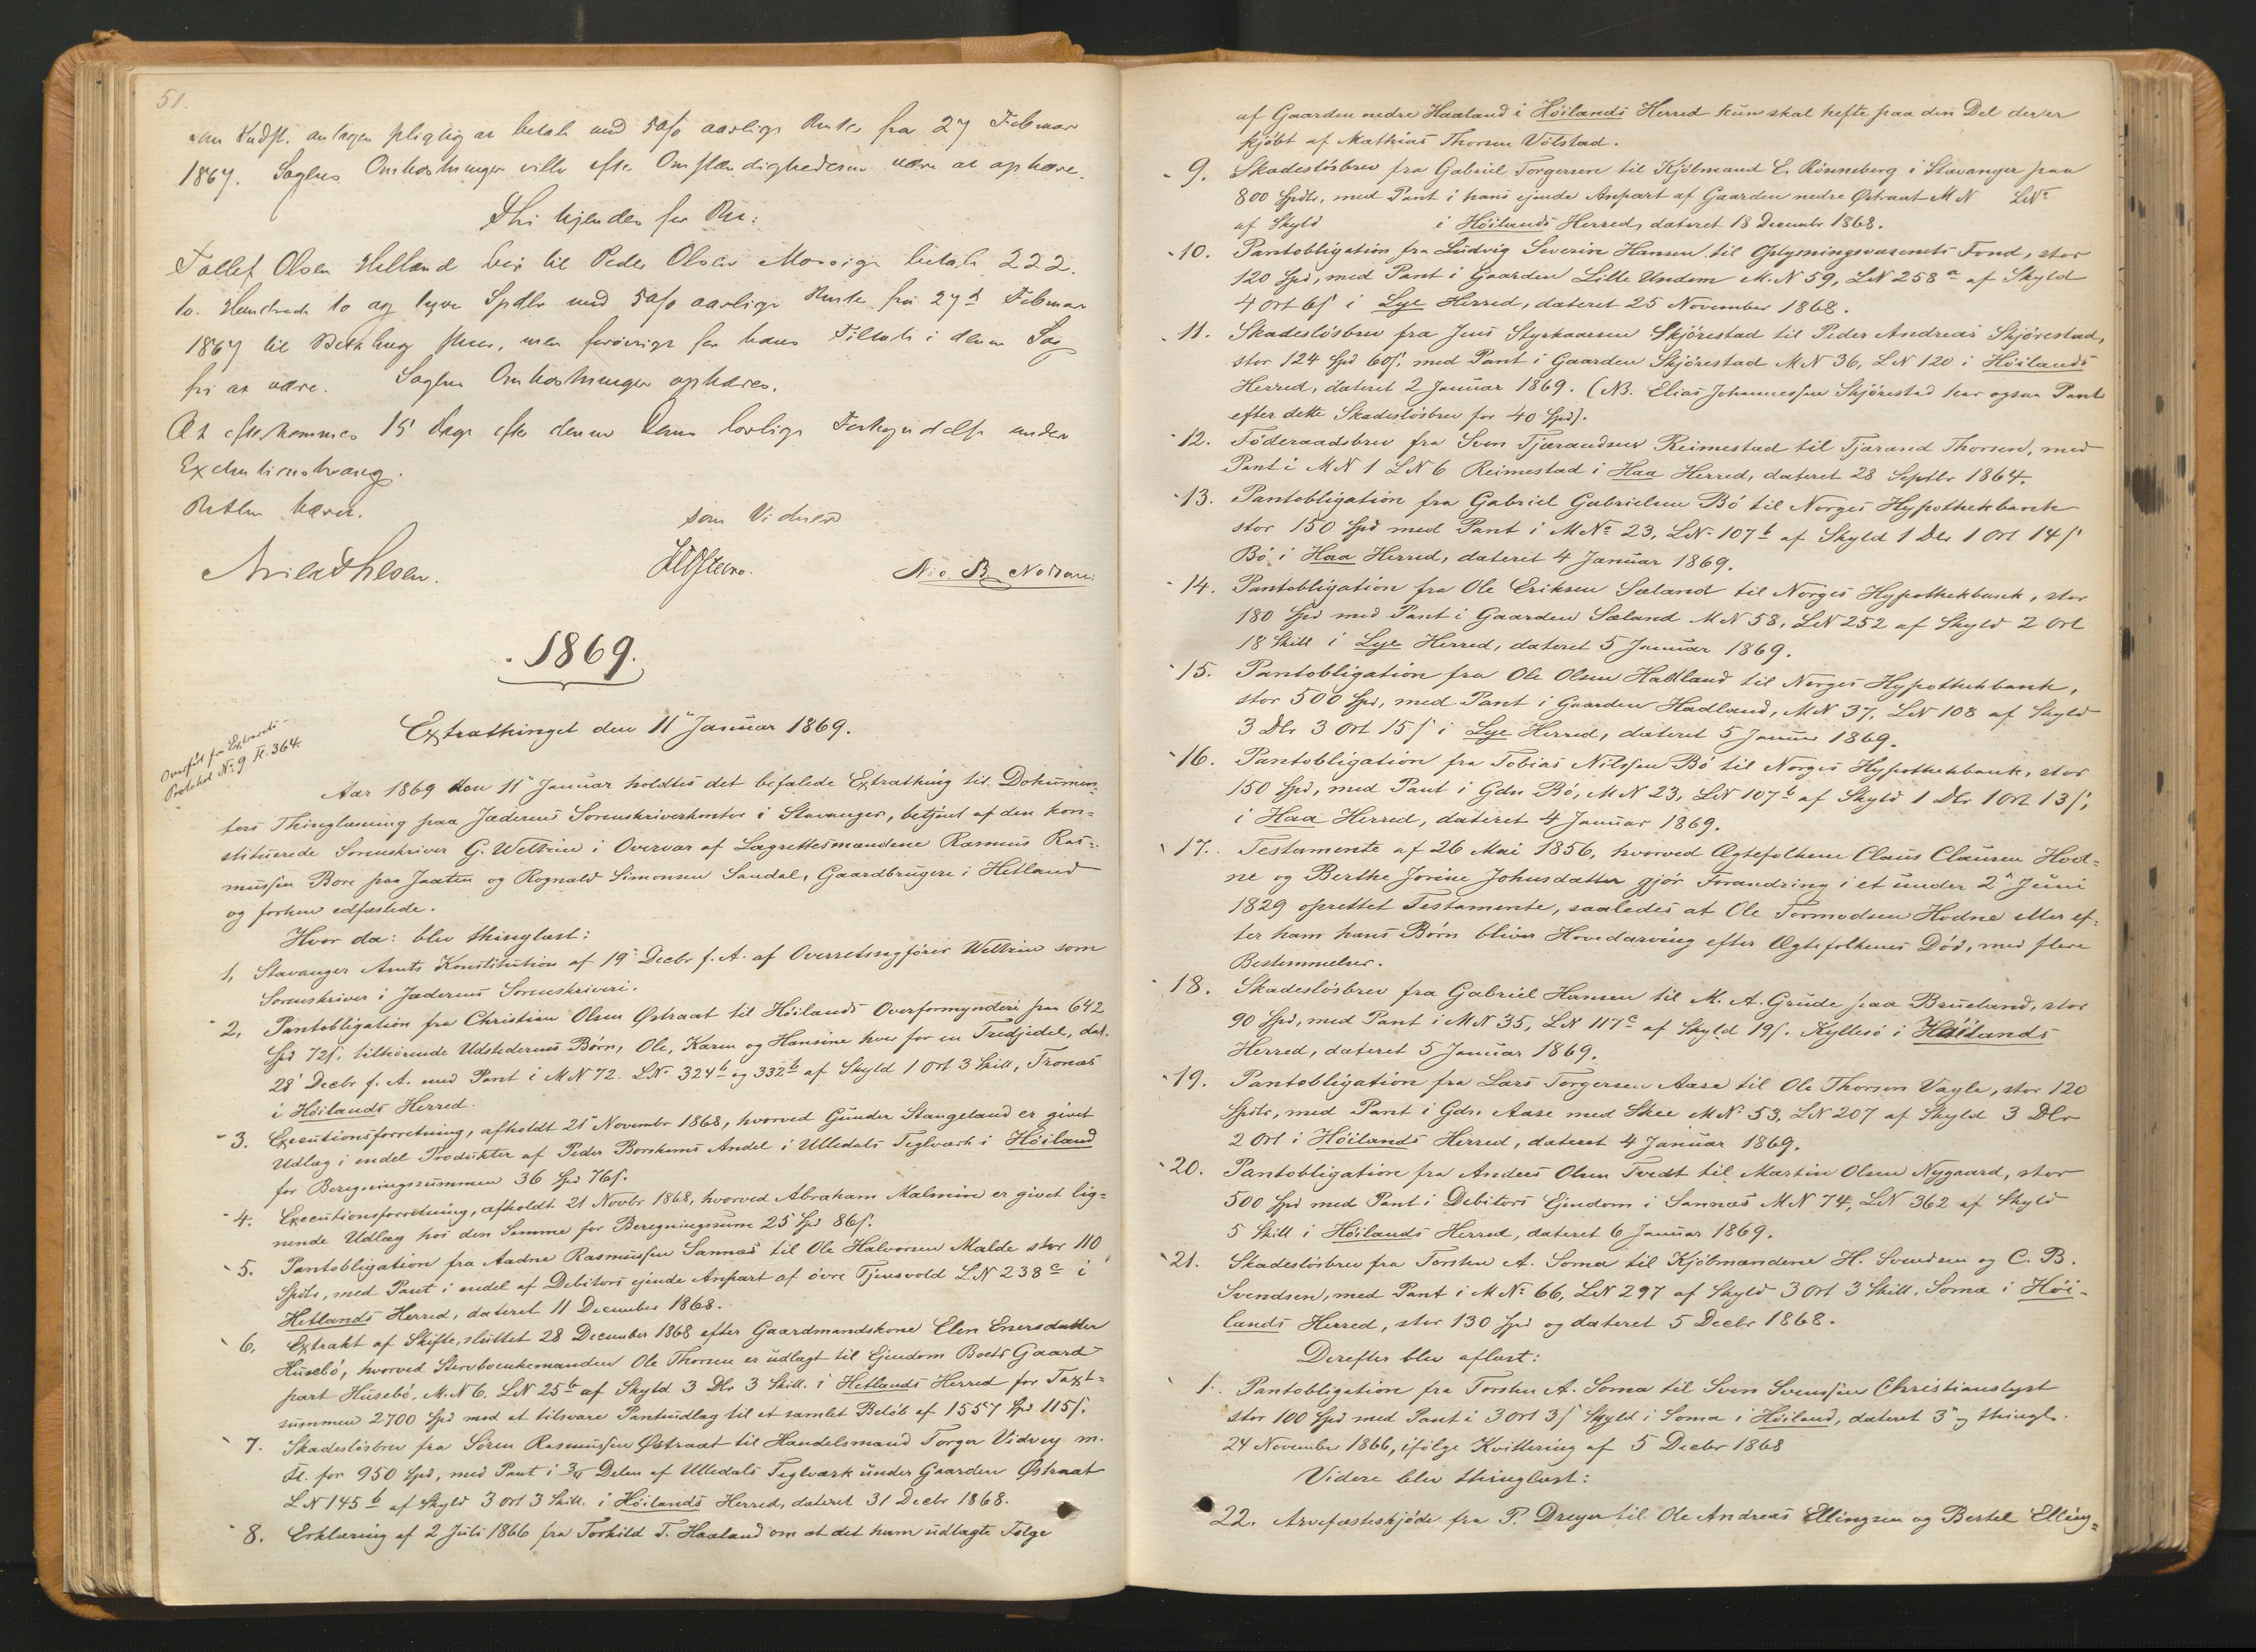 51.
Indst. antages pligtig at betale med 5 o/o aarlige Renter fra 27 Februar
1867. Sagens Omkostninger ville efter Omstændighederne være at ophæve.
Thi kjendes for Ret:
Tollef Olsen Helland bør til Peder Olsen Mossige betale 222.
to Hundrede to og tyve Spdlr med 5 o/o aarlige Renter fra 27d Februar
1867 til Betaling skeer, men forøvrigt for hans Tiltale i denne Sag
fri at være. Sagens Omkostninger ophæves.
At efterkommes 15 Dage efter denne Doms lovlige Forkyndelse under
Executionstvang.
Retten hævet.
som Vidner
1869.
Extrathinget den 11te Januar 1869.
Overført fra Extraretts
Protokol No 9 Fl. 364.
Aar 1869 den 11te Januar holdtes det befalede Extrathing til Dokumen-
ters Thinglæsning paa Jæderens Sorenskriverkontor i Stavanger, betjent af den kon-
stituerede Sorenskriver G. Weltzin i Overvær af Lagrettesmændene Rasmus Ras-
mussen Bore paa Jaaten og Rognald Simonsen Sandal, Gaardbrugere i Hetland
og forhen edfæstede.
Hvor da: blev thinglæst:
1, Stavanger Amts Konstitution af 19de Decbr f. A. af Overretssagfører Weltzin som
Sorenskriver i Jæderens Sorenskriveri.
2, Pantobligation fra Christian Olsen Østraat til Høilands Overformynderi paa 642
Spd 72ſ. tilhørende Udstederens Børn, Ole, Karen og Hansine hver for en Tredjedel, dat.
28de Decbr f. A. med Pant i M N 72. LN. 324b og 332b af Skyld 1 Ort 3 Skill, Tronæs
i Høilands Herred.
3. Executionsforretning, afholdt 21 November 1868, hvorved Gunder Stangeland er givet
Udlæg i endel Produkter af Peder Borshems Andel i Ulledals Teglværk i Høiland
for Beregningssummen 36 Spd 76ſ.
4. Executionsforretning, afholdt 21 Novbr 1868, hvorved Abraham Malmin er givet lig-
nende Udlæg hos den Samme for Beregningssum 25 Spd 86ſ.
5. Pantobligation fra Aadne Rasmussen Sannæs til Ole Halvorsen Malde stor 110
Spdlr, med Pant i endel af Debitors ejende Anpart af øvre Tjensvold LN 238c i
Hetlands Herred, dateret 11 December 1868.
6. Extrakt af Skifte, sluttet 28 December 1868 efter Gaardmandskone Elen Enersdatter
Husebø, hvorved Stervboenkemanden Ole Thorsen er udlagt til Ejendom Boets Gaard-
part Husebø. M.N 6. LN 25b af Skyld 3 Dlr 3 Skill. i Hetlands Herred for Taxt-
summen 2700 Spd mod at tilsvare Pantudlæg til et samlet Beløb af 1557 Spd 115ſ.
7. Skadesløsbrev fra Søren Rasmussen Østraat til Handelsmand Torger Vidvey m.
Fl. for 950 Spd, med Pant i Delen af Ulledals Teglværk under Gaarden Østraat
LN 145b af Skyld 3 Ort 3 Skill. i Høilands Herred, dateret 31 Decbr 1868.
8. Erklæring af 2 Juli 1866 fra Torkild T. Haaland om at det ham udlagte Følge
af Gaarden nedre Haaland i Høilands Herred kun skal hefte paa den Del der er
kjøbt af Mathias Thorsen Vølstad.
9. Skadesløsbrev fra Gabriel Torgersen til Kjøbmand E. Rønneberg i Stavanger paa
800 Spdlr, med Pant i hans ejende Anpart af Gaarden nedre Østraat M N LNo
af Skyld i Høilands Herred, dateret 18 December 1868.
10. Pantobligation fra Ludvig Severin Hansen til Oplysningsvæsenets Fond, stor
120 Spd, med Pant i Gaarden Lille Undem M.N 59, LN 258a af Skyld
4 Ort 6ſ i Lye Herred, dateret 25 November 1868.
11. Skadesløsbrev fra Jens Styrkaarsen Skjørestad til Peder Andreas Skjørestad,
stor 124 Spd 60ſ. med Pant i Gaarden Skjørestad M N 36, LN 120 i Høilands
Herred, dateret 2 Januar 1869. (NB. Elias Johannessen Skjørestad har ogsaa Pant
efter dette Skadesløsbrev for 40 Spd).
12. Føderaadsbrev fra Sven Tjærandsen Reimestad til Tjærand Thorsen, med
Pant i M N 1 LN 6 Reimestad i Haa Herred, dateret 28 Septbr 1864.
13. Pantobligation fra Gabriel Gabrielsen Bø til Norges Hypothekbank
stor 150 Spd med Pant i M No 23, LN. 107b af Skyld 1 Dlr 1 Ort 14ſ
Bø i Haa Herred, dateret 4 Januar 1869.
14. Pantobligation fra Ole Eriksen Sæland til Norges Hypothekbank, stor
180 Spd med Pant i Gaarden Sæland M N 58, LN 252 af Skyld 2 Ort
18 Skill i Lye Herred, dateret 5 Januar 1869.
15. Pantobligation fra Ole Olsen Hadland til Norges Hypothekbank,
stor 500 Spd, med Pant i Gaarden Hadland, M N 37, LN 108 af Skyld
3 Dlr 3 Ort 15ſ i Lye Herred, dateret 5 Januar 1869.
16. Pantobligation fra Tobias Nilssen Bø til Norges Hypothekbank, stor
150 Spd, med Pant i Gdn Bø, M N 23, LN 107b af Skyld 1 Dlr 1 Ort 13ſ,
i Haa Herred, dateret 4 Januar 1869.
17. Testamente af 26 Mai 1856, hvorved Ægtefolkene Claus Clausen Hod-
ne og Berthe Jorine Johnsdatter gjør Forandring i et under 2den Juni
1829 oprettet Testamente, saaledes at Ole Tormodsen Hodne eller ef-
ter ham hans Børn bliver Hovedarving efter Ægtefolkenes Død, med flere
Bestemmelser.
18. Skadesløsbrev fra Gabriel Hansen til M. A. Grude paa Brueland, stor
90 Spd, med Pant i M N 35, LN 117c af Skyld 19ſ. Kyllesø i Høilands
Herred, dateret 5 Januar 1869.
19. Pantobligation fra Lars Torgersen Aase til Ole Thorsen Vagle, stor 120
Spdlr, med Pant i Gdn. Aase med Skee M N. 53, LN 207 af Skyld 3 Dlr
2 Ort i Høilands Herred, dateret 4 Januar 1869.
20. Pantobligation fra Anders Olsen Tvedt til Martin Olsen Nygaard, stor
500 Spd med Pant i Debitors Ejendom i Sannæs M N 74, LN 362 af Skyld
5 Skill i Høilands Herred, dateret 6 Januar 1869.
21. Skadesløsbrev fra Torsten A. Soma til Kjøbmændene H. Svendsen og C. B.
Svendsen, med Pant i M No 66, LN 297 af Skyld 3 Ort 3 Skill. Soma i Høi-
lands Herred, stor 130 Spd og dateret 5 Decbr 1868.
Derefter blev aflæst:
1. Pantobligation fra Torsten A. Soma til Sven Svenssen Christianslyst
stor 100 Spd med Pant i 3 Ort 3ſ Skyld i Soma i Høiland, dateret 3die og thingl.
24 November 1866, ifølge Kvittering af 5 Decbr 1868
Videre blev thinglæst:
22. Arvefæsteskjøde fra P. Dreyer til Ole Andreas Ellingsen og Bertel Elling-